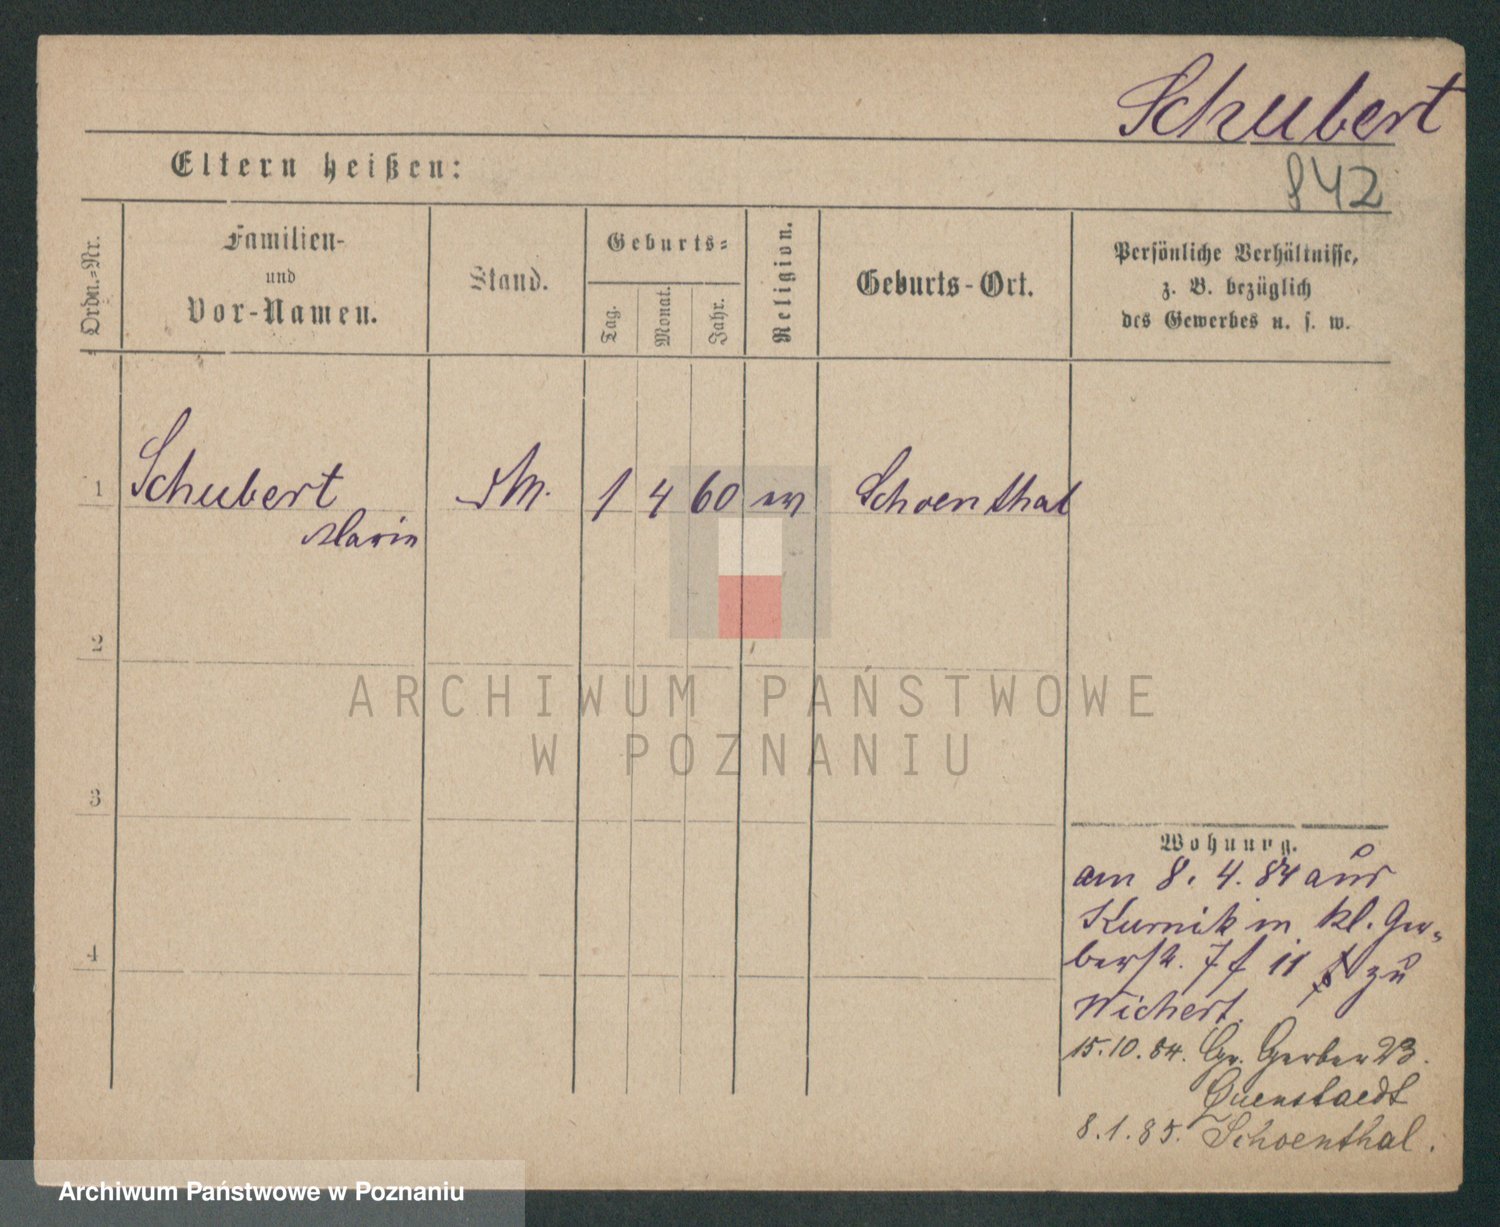 Schubert
842
Eltern heißen:
Ordn.=Nr.
Familien-
und
Vor-Namen.
Stand.
Geburts=
Tag.
Monat.
Jahr.
Religion.
Geburts-Ort.
Persönliche Verhältnisse,
z. B. bezüglich
des Gewerbes u. s. w.
1 Schubert 1 4 60 ev Schoenthal
Marie
2
ARCHIWUM PAŃSTWOWE
W POZNANIU
3
4
Wohnung.
am 8. 4. 84 aus
Kurnik in kl. Ger=
berstr. 7 11 zu
Wichert.
15.10.84. Gr. Gerber 23.
Quenstaedt
8.1.85. Schoenthal.
Archiwum Państwowe w Poznaniu